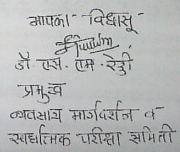 आपला विश्वासू
डॉ एस. एम. रेड्डी
प्रमुख
व्यवसाय मार्गदर्शन व
स्पर्धात्मक परीक्षा समिती